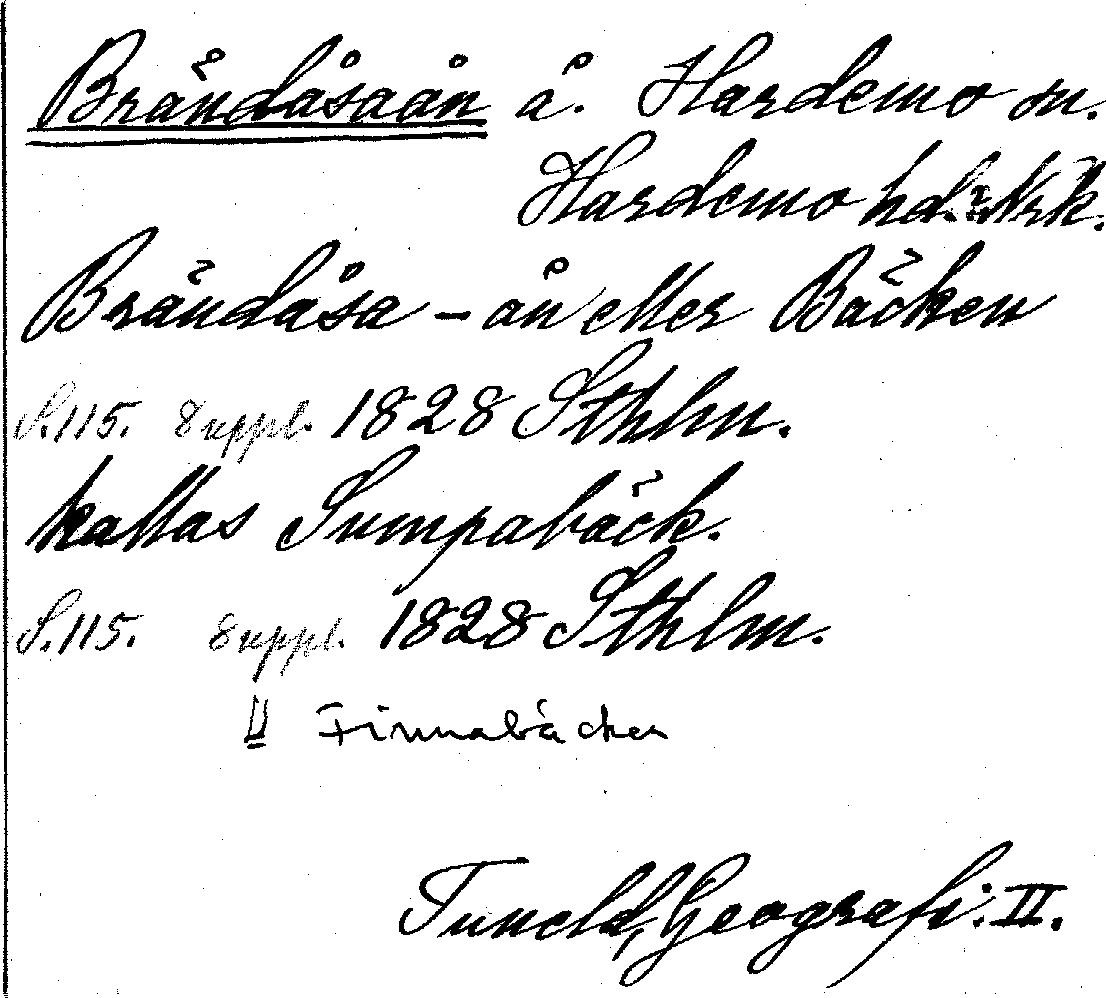 Brändåsaån å. Hardemo sn.
Hardemo hd. Nrk.
Brändåsa - ån eller Bäcken
S.115. Suppl. 1828 Sthlm.
kallas Sumpabäck.
S.115. Suppl. 1828 Sthlm.
Finnabäcken
Tuneld, Geografi: II.